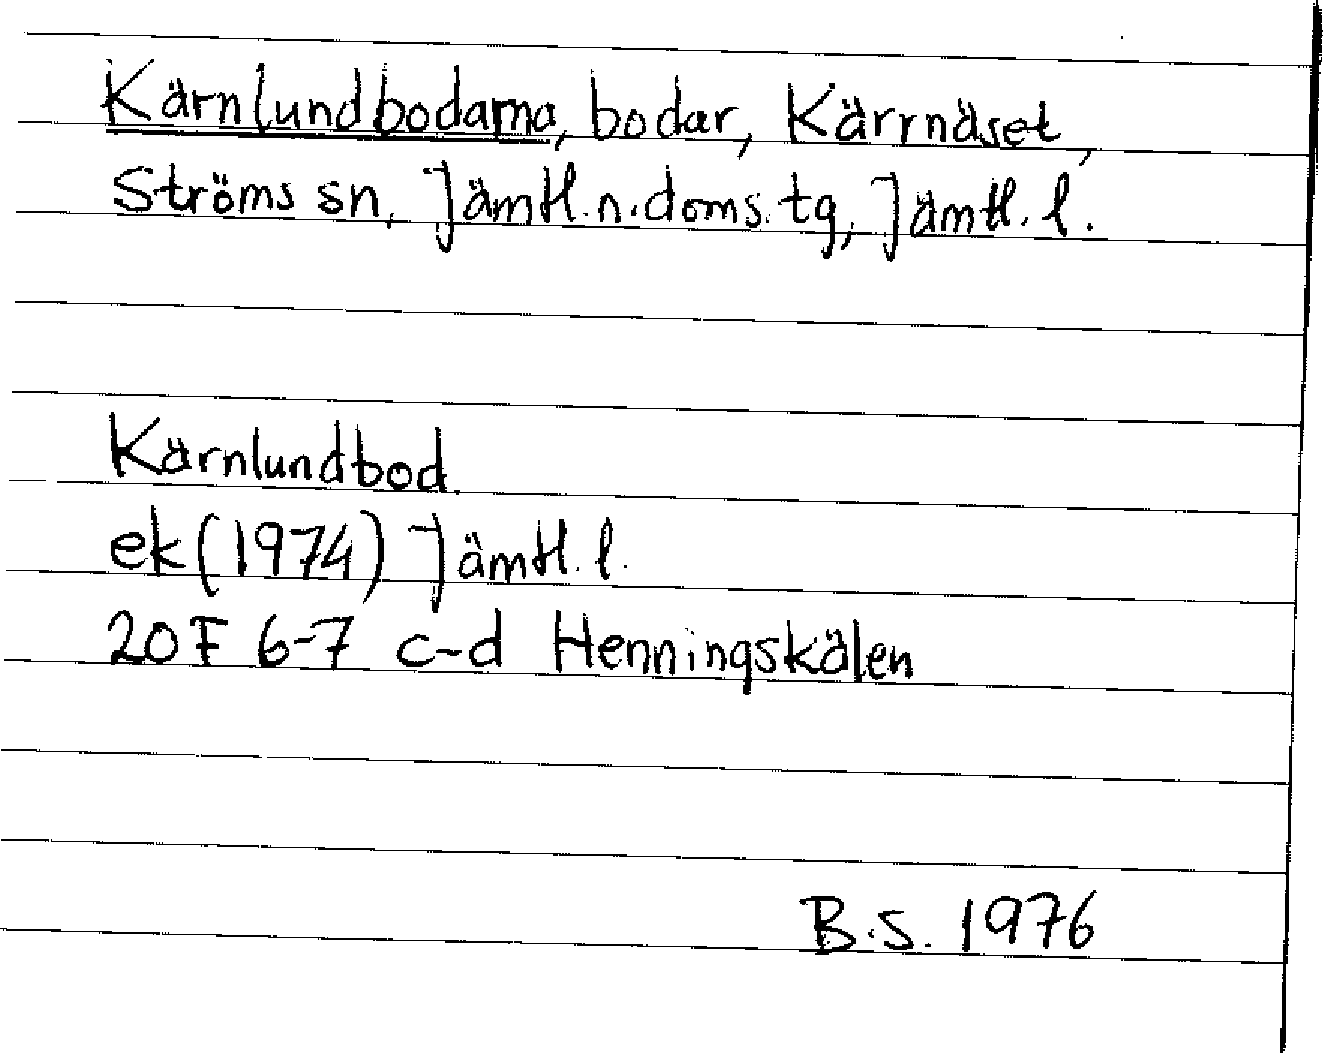 Kärnlundbodarna, bodar, Kärrnäset,
Ströms sn, Jämtl.n.doms.tg, Jämtl.l.
Kärnlundbod.
ek(1974) Jämtl.l.
20F 6-7 c-d Henningskälen
B.S. 1976